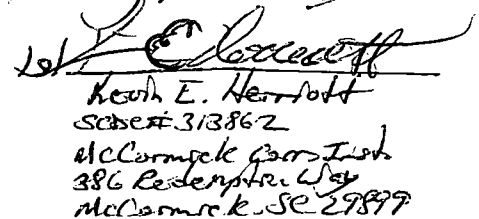 /s/ K E Herriott
Kevin E. Herriott
SCDC# 313862
McCormick Corr. Inst.
386 Redemption Way
McCormick, SC 29899